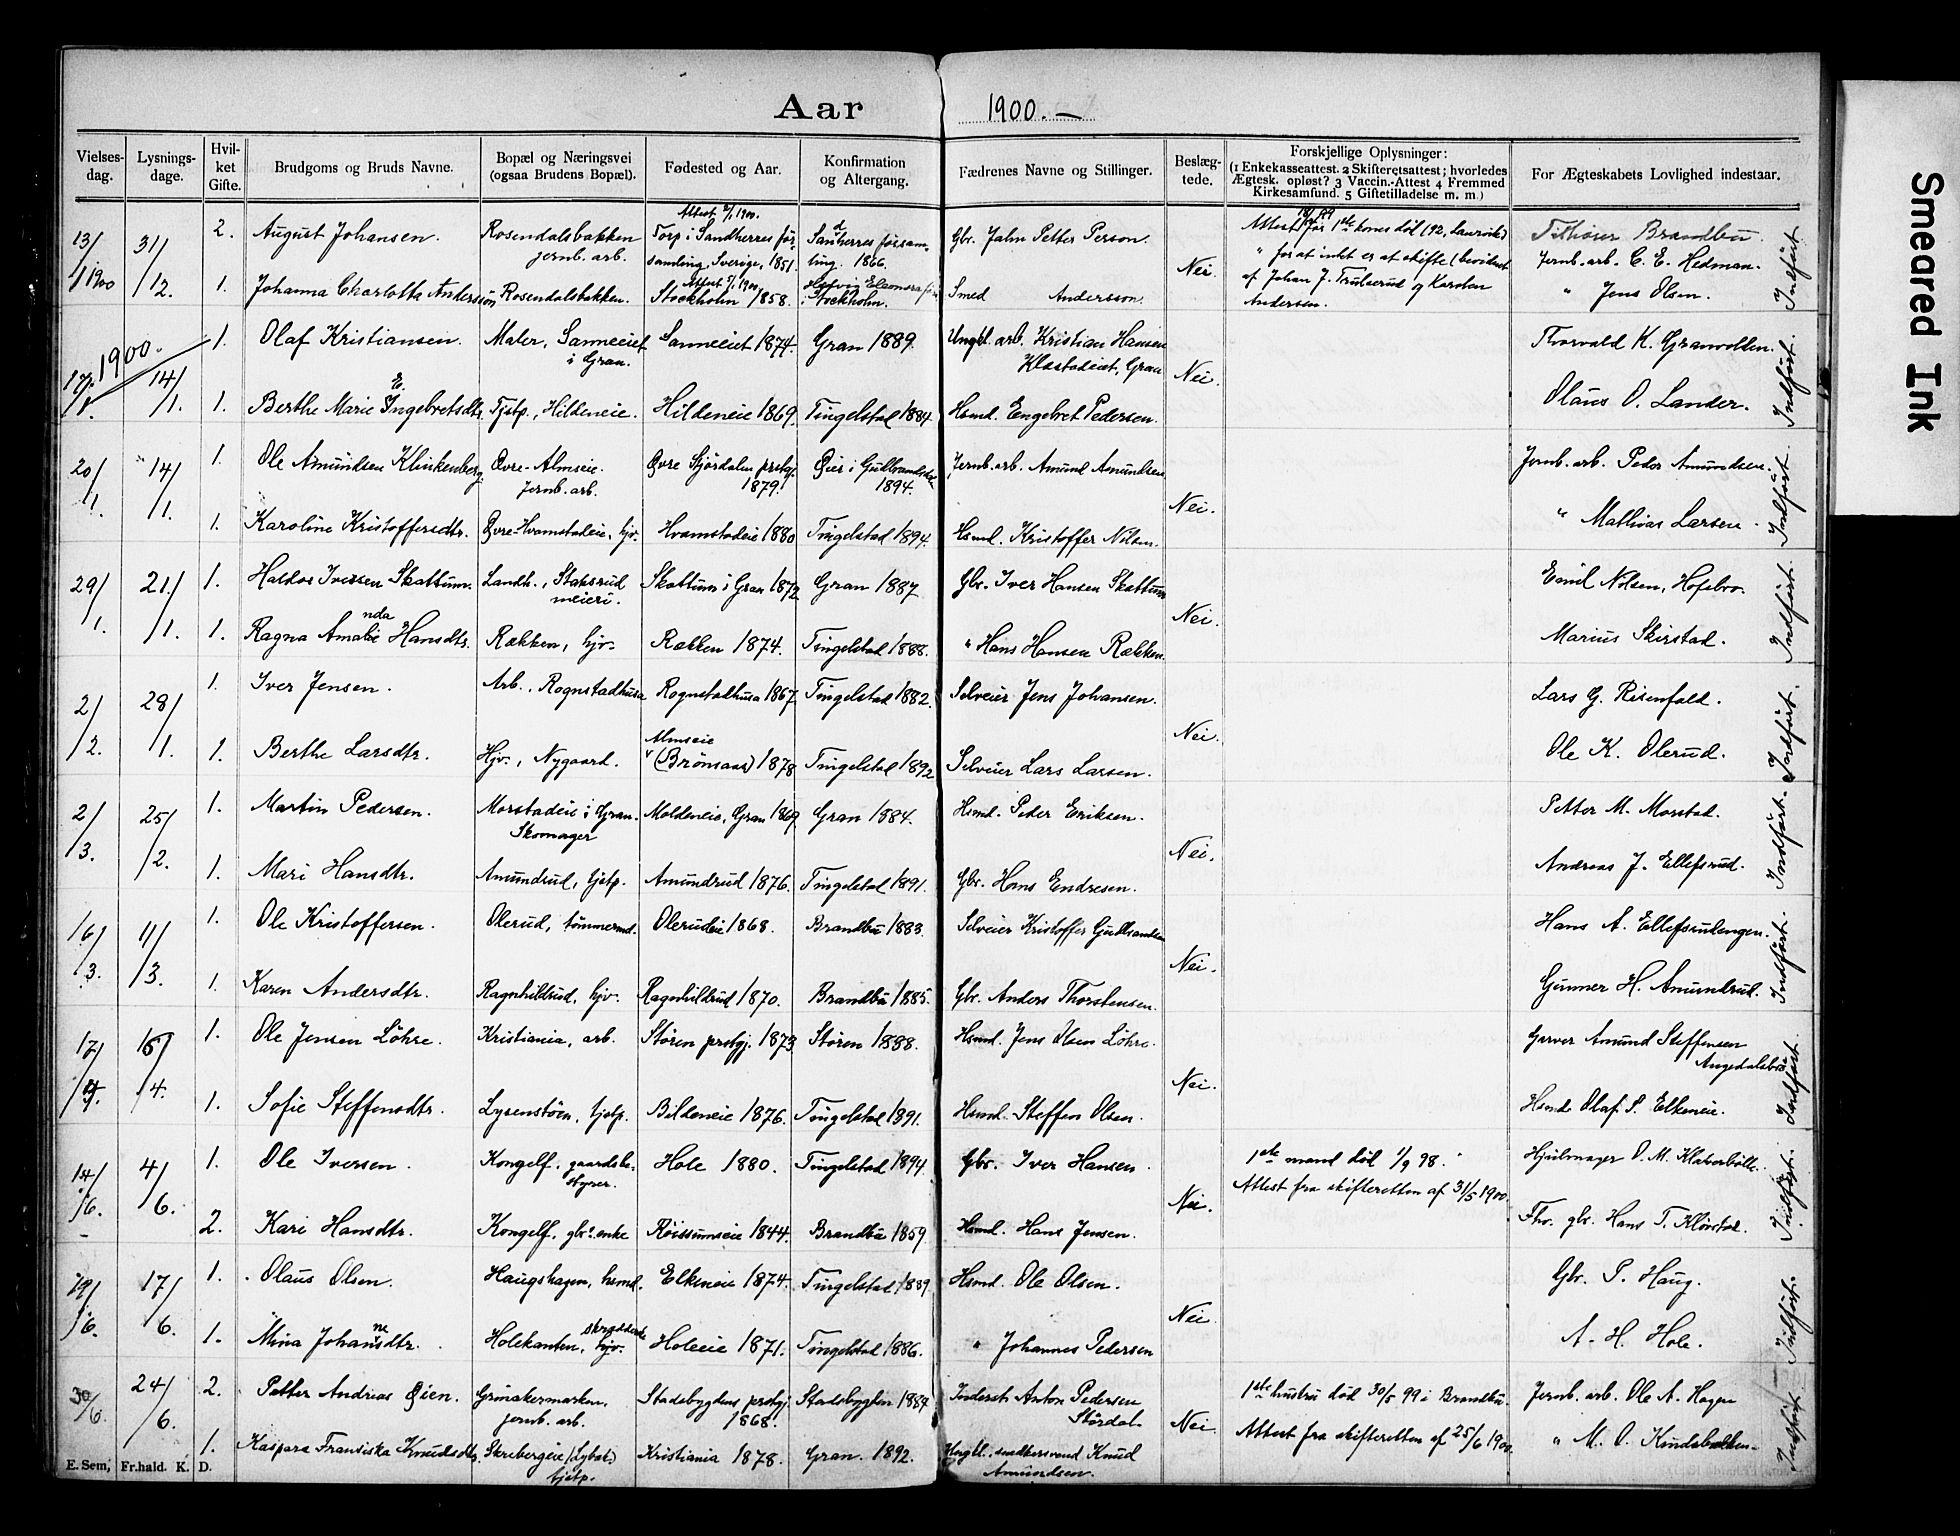 Aar 1900. —
Vielses-dag.
Lysnings-dage.
Hvil-ket Gifte.
Brudgoms og Bruds Navne.
Bopæl og Næringsvei (ogsaa Brudens Bopæl).
Fødested og Aar.
Konfirmation og Altergang.
Fædrenes Navne og Stillinger.
Beslæg-tede.
Forskjellige Oplysninger: (1 Enkekasseattest. 2 Skifteretsattest; hvorledes Ægtesk. opløst? 3 Vaccin.-Attest 4 Fremmed Kirkesamfund. 5 Giftetilladelse m. m.)
For Ægteskabets Lovlighed indestaar.
13/1 1900 31/12. 2. August Johansen. Rosendalsbakken jernb. arb. Attest 1900. Torp i Sandherres forsamling, Sverige, 1851. Sanherres forsamling. 1866. Gbr. Jahn Petter Person. Nei. Jernb. arb. C. E. Hedman.
1. Johanna Charlotta Andersson, Rosendalsbakken. Stockholm 1858. Stockholm. Smed Andersson. " Jens Olsen. Indført
1900.
17/1. 14/1. 1. Olaf Kristiansen. Maler, Sanneeiet i Gran. Sanneeiet 1874. Gran 1889. Ungkl. arb. Kristian Hansen Klæstadeiet, Gran Nei. Thorvald K. Granvollen.
1. Berthe Marie E. Ingebretsdtr. Tjstp., Hildeneie. Hildeneie 1869. Tingelstad 1884. Hsmd. Engebret Pedersen. Olaus O. Lander. Indført.
20/1. 14/1. 1. Ole Amundsen Klinkenberg. Øvre-Almseie. Jernb. arb. Øvre Stjørdalen prstgj. 1879. Øier i Gulbrandsdal 1894. Jernb. arb. Amund Amundsen Nei. Jernb. arb. Peder Amundsen.
1. Karoline Kristoffersdtr. Øvre-Hvamstadeie, hjv. Hvamstadeie 1880 Tingelstad 1894. Hsmd. Kristoffer Nilsen. " Mathias Larsen. Indført
29/1. 21/1. 1. Haldor Iversen Skattum. Landh., Staksrud meieri. Skattum i Gran 1872 Gran 1887 Gbr. Iver Hansen Skattum Nei. Emil Nilsen, Hofsbro.
1. Ragna Amalie nda Hansdtr. Rækken, hjv. Rækken 1874. Tingelstad 1888. " Hans Hansen Rækken. Marius Skirstad. Indført.
2/2. 28/1. 1. Iver Jensen. Arb., Rognstadhusa Rognstadhusa 1867 Tingelstad 1882. Selveier Jens Johansen. Nei. Lars G. Risenfald.
1. Berthe Larsdtr. Hjv., Nygaard. Almseie (Brønsaas) 1878 Tingelstad 1892 Selveier Lars Larsen. Ole K. Olerud. Indført.
2/3. 25/2. 1. Martin Pedersen. Morstadeie i Gran. Skomager Moldeneie, Gran 1869 Gran 1884. Hsmd. Peder Eriksen. Nei. Petter M. Morstad.
1. Mari Hansdtr. Amundrud, tjstp. Amundrud 1876. Tingelstad 1891. Gbr. Hans Endresen. Andreas J. Ellefsrud. Indført.
16/3. 11/3. 1. Ole Kristoffersen. Olerud, tømmermd. Olerudeie 1868. Brandbu 1883. Selveier Kristoffer Gudbrandsen Nei. Hans A. Ellefsrudengen.
1. Karen Andersdtr. Ragnhildrud, hjv. Ragnhildrud 1870. Brandbu 1885. Gbr. Anders Thorstensen. Gunner H. Amundrud. Indført.
17/4. 15/4. 1. Ole Jensen Løhre. Kristiania, arb. Støren prstgj. 1873 Støren 1888. Hsmd. Jens Olsen Løhre. Nei. Garver Amund Steffensen Angedalsbro
1. Sofie Steffensdtr. Lysenstøen, tjstp. Bildeneie 1876. Tingelstad 1891. Hsmd. Steffen Olsen. Hsmd. Olaf S. Elkeneie. Indført.
14/6. 4/6. 1. Ole Iversen. Kongelf. gaardsbestyrer. Hole 1880. Tingelstad 1894 Gbr. Iver Hansen. Nei. 1ste mand død 1/9 98. Attest fra skifteretten af 31/5 1900. Hjulmager O. M. Klæverbølle.
2. Kari Hansdtr. Kongelf. gbr. enke Røissumseie 1844. Brandbu 1859. Hsmd. Hans Jensen. Fhv. gbr. Hans T. Kløvstad. Indført.
19/6. 17/6. 1. Olaus Olsen. Haugshagen, hsmd. Elkeneie 1874. Tingelstad 1889. Hsmd. Ole Olsen. Nei. Gbr. P. Haug.
1. Mina Johannesdtr. Holekanten, skrædderske hjv. Holeeie 1871. Tingelstad 1886. " Johannes Pedersen A. H. Hole. Indført.
30/6. 24/6. 2. Petter Andreas Øien. Grinakermarken. jernb. arb. Stadsbygdens prstgj. 1868. Stadsbygden 1884 Inderst Anton Pedersen Stördal. Nei. 1ste hustru død 30/5 99 i Brandbu. Attest fra skifteretten af 25/6 1900. Jernb. arb. Ole A. Hagen
1. Kaspara Fransiska Knudsdtr. Skrebergeie (Lybæk) tjstp. Kristiania 1878. Gran. 1892. Ungkl. snedkersvend Knud Amundsen. " M. O. Kindsbakken. Indført
E. Sem, Fr.hald. K. D.
Smeared Ink